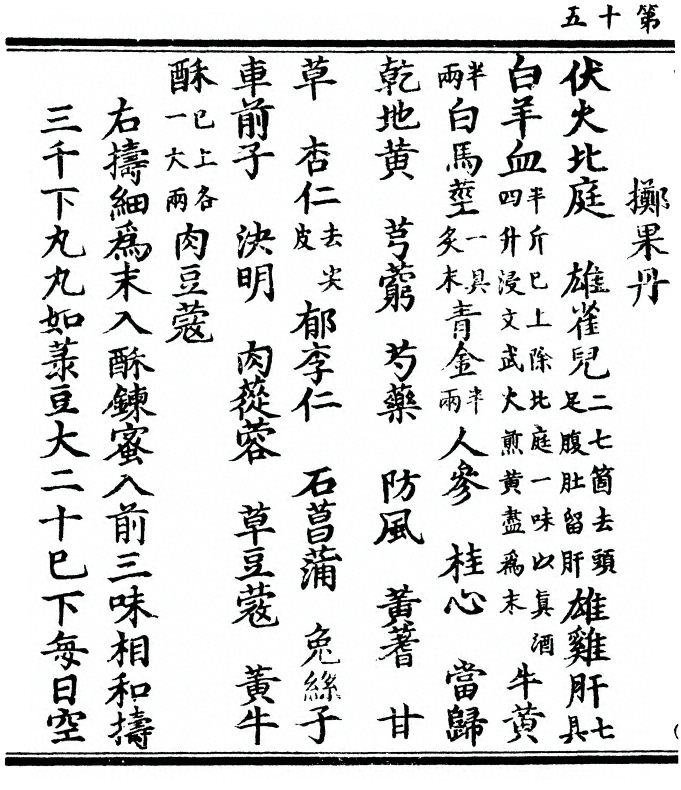 第十五
擲果丹
伏火北庭 雄雀兒二七箇去頭足腹肚留肝 雄雞肝七具
白羊血半斤巳上除北庭一味以眞酒四升浸文武火煎黃盡爲末 牛黃
半兩 白馬莖一具炙末 青金半兩 人參 桂心 當歸
乾地黃 芎藭 芍藥 防風 黃蓍 甘
草 杏仁去尖皮 郁李仁 石菖蒲 兔絲子
車前子 決明 肉蓯蓉 草豆蔻 黃牛
酥巳上各一大兩 肉豆蔻
右擣細爲末入酥鍊蜜入前三味相和擣
三千下丸丸如菉豆大二十巳下每日空